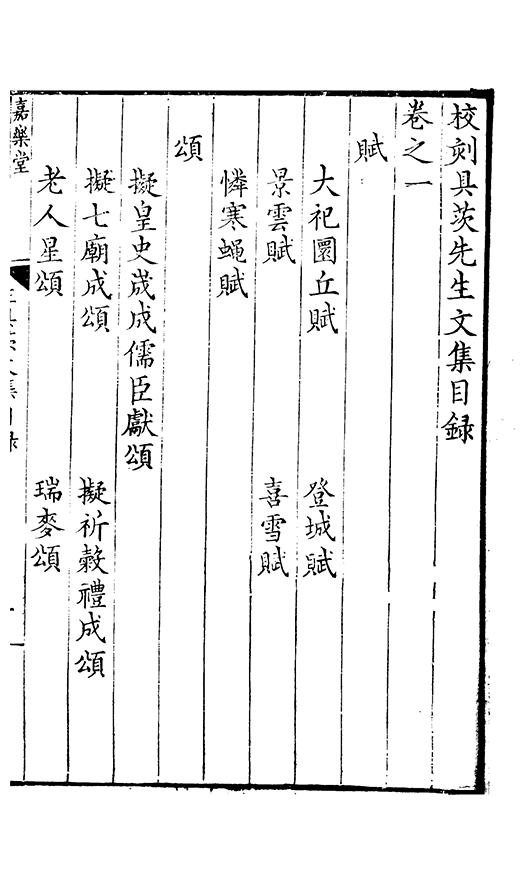 校刻具茨先生文集目録
卷之一
賦
大祀圜丘賦　登城賦
景雲賦　喜雪賦
憐寒蠅賦
頌
擬皇史宬成儒臣獻頌
擬七廟成頌　擬祈穀禮成頌
老人星頌　瑞麥頌
嘉樂堂